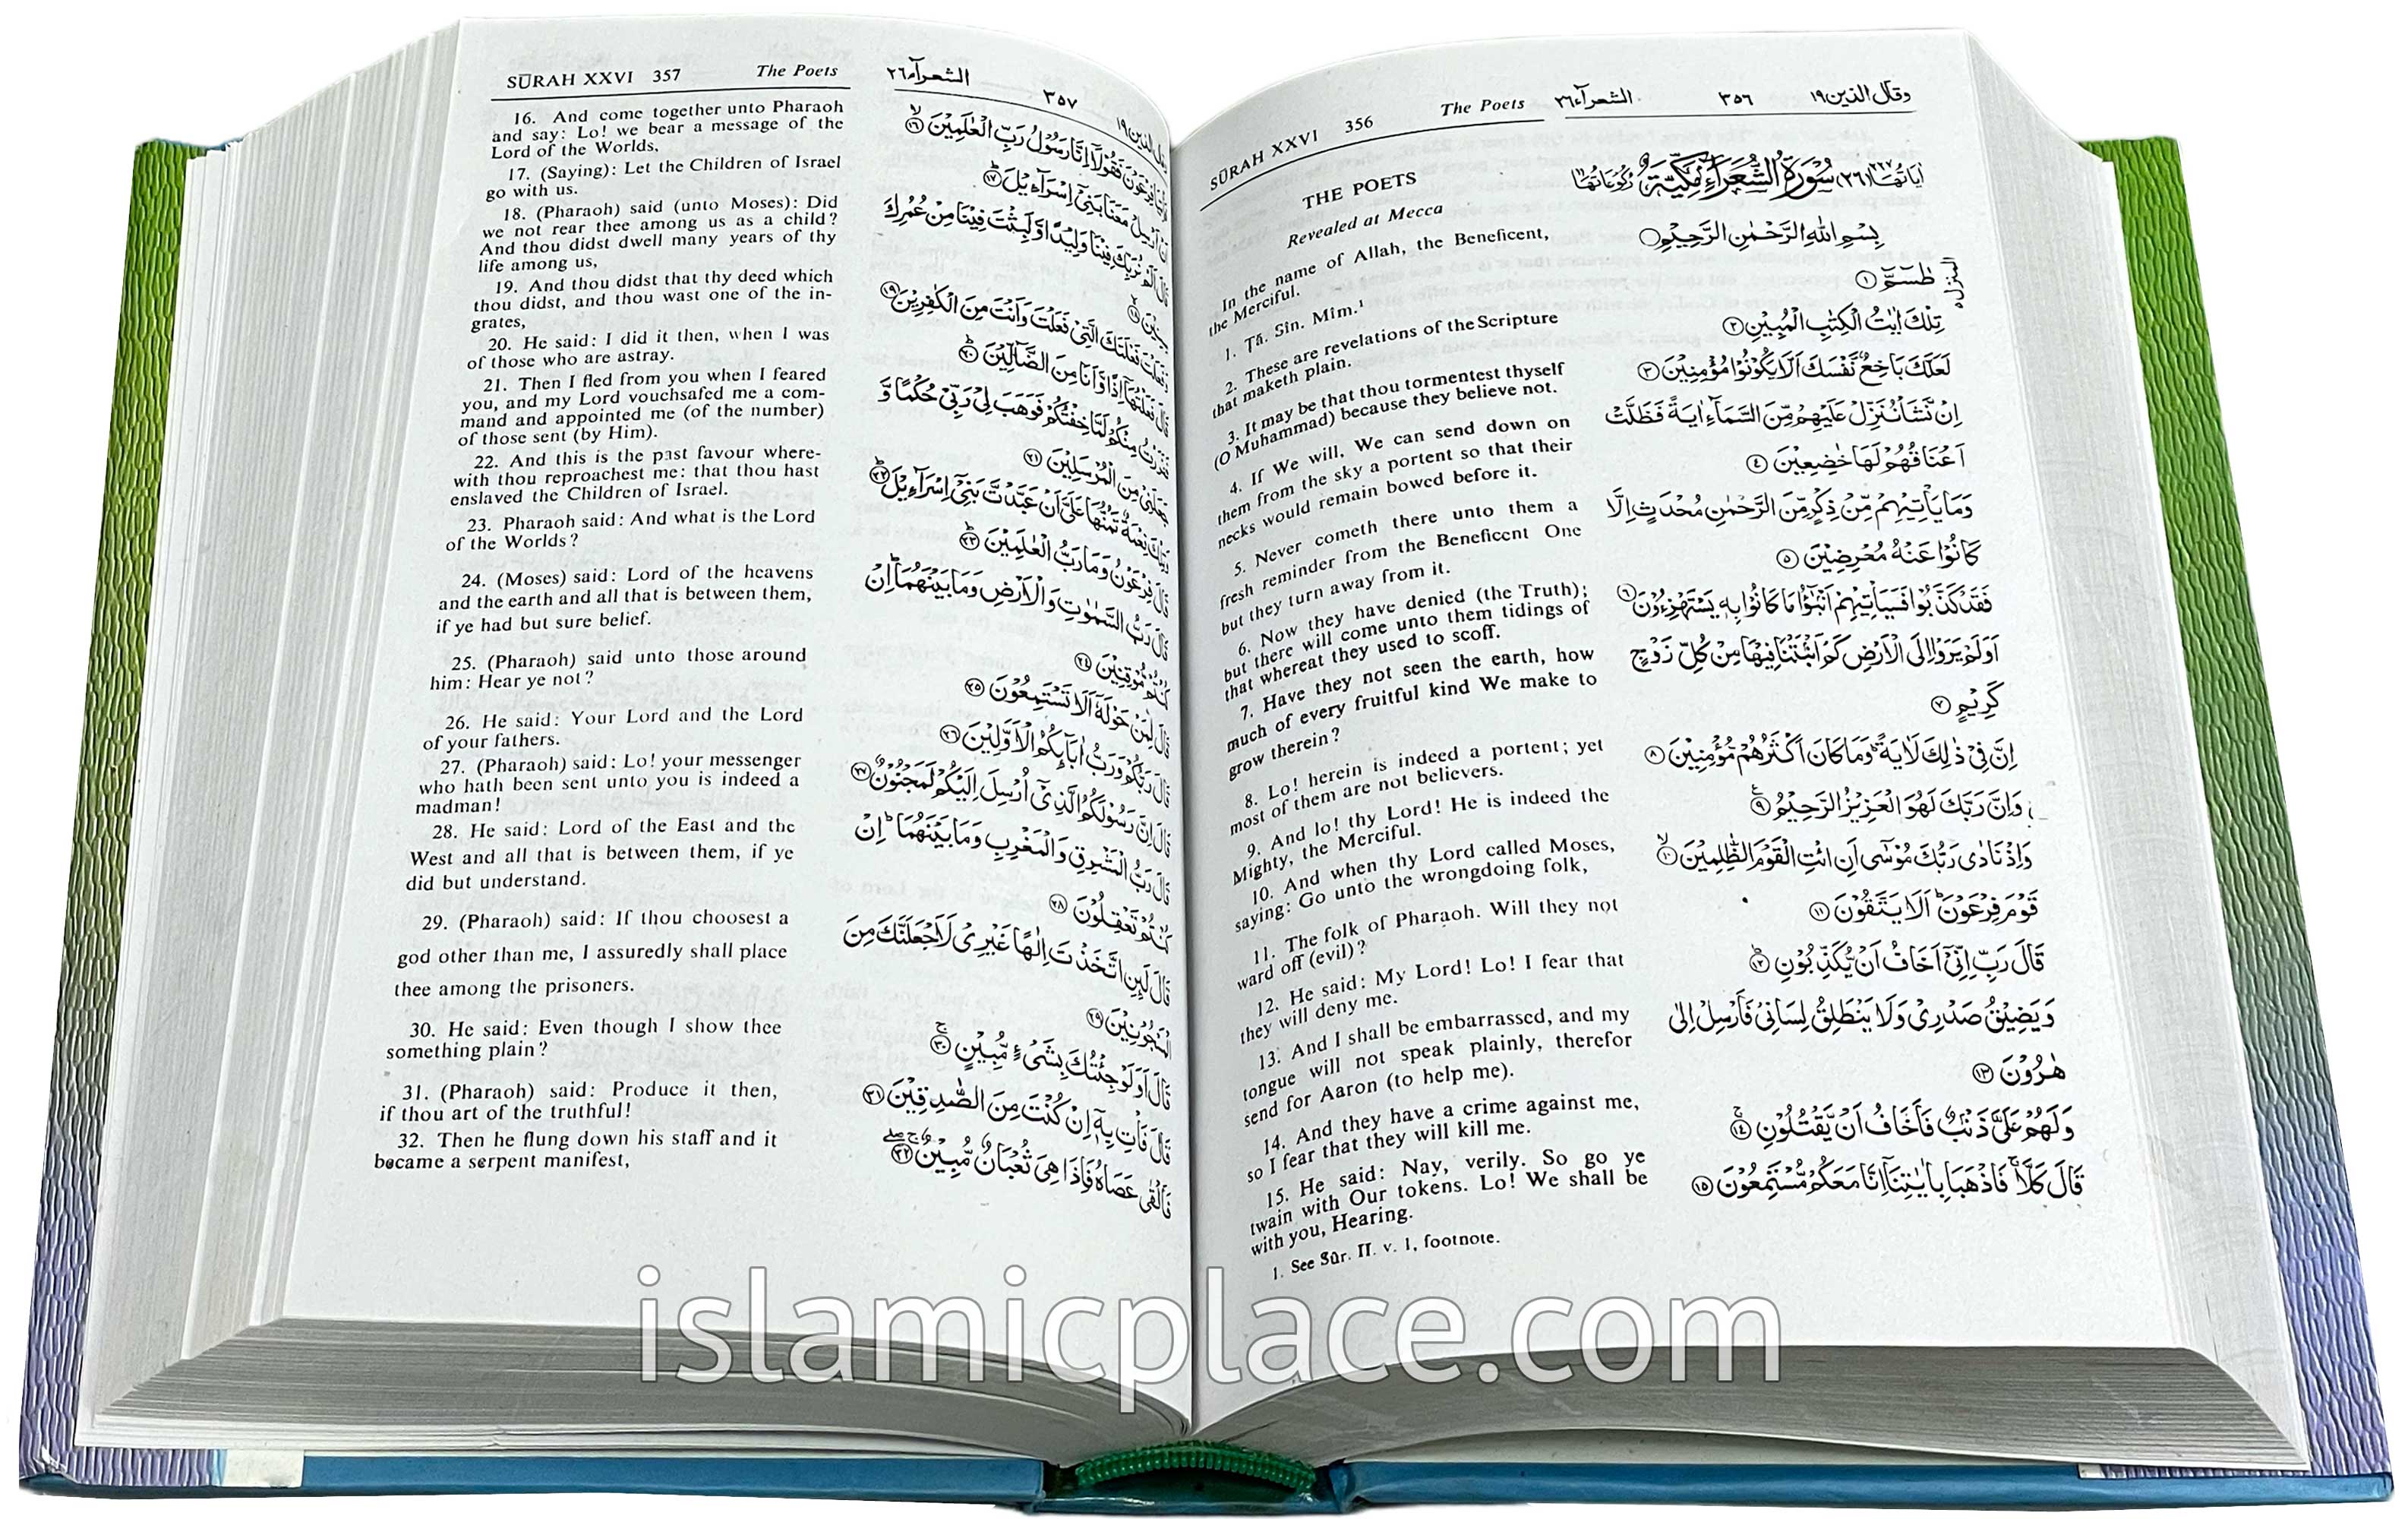 SŪRAH XXVI 356 The Poets الشعرآء٢٦ ٣٥٦ وقال الذين١٩
THE POETS
Revealed at Mecca
In the name of Allah, the Beneficent,
the Merciful.
1. Ṭâ. Sîn. Mîm.¹
2. These are revelations of the Scripture
that maketh plain.
3. It may be that thou tormentest thyself
(O Muhammad) because they believe not.
4. If We will, We can send down on
them from the sky a portent so that their
necks would remain bowed before it.
5. Never cometh there unto them a
fresh reminder from the Beneficent One
but they turn away from it.
6. Now they have denied (the Truth);
but there will come unto them tidings of
that whereat they used to scoff.
7. Have they not seen the earth, how
much of every fruitful kind We make to
grow therein?
8. Lo! herein is indeed a portent; yet
most of them are not believers.
9. And lo! thy Lord! He is indeed the
Mighty, the Merciful.
10. And when thy Lord called Moses,
saying: Go unto the wrongdoing folk,
11. The folk of Pharaoh. Will they not
ward off (evil)?
12. He said: My Lord! Lo! I fear that
they will deny me.
13. And I shall be embarrassed, and my
tongue will not speak plainly, therefor
send for Aaron (to help me).
14. And they have a crime against me,
so I fear that they will kill me.
15. He said: Nay, verily. So go ye
twain with Our tokens. Lo! We shall be
with you, Hearing.
1. See Sûr. II. v. 1, footnote.
اٰيَاتُهَا ٢٢٧ (٢٦) سُوْرَةُ الشُّعَرَآءِ مَكِّيَّةٌ رُكُوْعَاتُهَا ١١
بِسْمِ اللّٰهِ الرَّحْمٰنِ الرَّحِيْمِ
طٰسٓمّٓ ۝١ المنزل٥
تِلْكَ اٰيٰتُ الْكِتٰبِ الْمُبِيْنِ ۝٢
لَعَلَّكَ بَاخِعٌ نَّفْسَكَ اَلَّا يَكُوْنُوْا مُؤْمِنِيْنَ ۝٣
اِنْ نَّشَاْ نُنَزِّلْ عَلَيْهِمْ مِّنَ السَّمَآءِ اٰيَةً فَظَلَّتْ
اَعْنَاقُهُمْ لَهَا خٰضِعِيْنَ ۝٤
وَمَا يَاْتِيْهِمْ مِّنْ ذِكْرٍ مِّنَ الرَّحْمٰنِ مُحْدَثٍ اِلَّا
كَانُوْا عَنْهُ مُعْرِضِيْنَ ۝٥
فَقَدْ كَذَّبُوْا فَسَيَاْتِيْهِمْ اَنْۢبٰٓؤُا مَا كَانُوْا بِهٖ يَسْتَهْزِءُوْنَ ۝٦
اَوَلَمْ يَرَوْا اِلَى الْاَرْضِ كَمْ اَنْۢبَتْنَا فِيْهَا مِنْ كُلِّ زَوْجٍ
كَرِيْمٍ ۝٧
اِنَّ فِيْ ذٰلِكَ لَاٰيَةً ؕ وَمَا كَانَ اَكْثَرُهُمْ مُّؤْمِنِيْنَ ۝٨
وَاِنَّ رَبَّكَ لَهُوَ الْعَزِيْزُ الرَّحِيْمُ ۝٩
وَاِذْ نَادٰى رَبُّكَ مُوْسٰٓى اَنِ ائْتِ الْقَوْمَ الظّٰلِمِيْنَ ۝١٠
قَوْمَ فِرْعَوْنَ ؕ اَلَا يَتَّقُوْنَ ۝١١
قَالَ رَبِّ اِنِّيْٓ اَخَافُ اَنْ يُّكَذِّبُوْنِ ۝١٢
وَيَضِيْقُ صَدْرِيْ وَلَا يَنْطَلِقُ لِسَانِيْ فَاَرْسِلْ اِلٰى
هٰرُوْنَ ۝١٣
وَلَهُمْ عَلَيَّ ذَنْۢبٌ فَاَخَافُ اَنْ يَّقْتُلُوْنِ ۝١٤
قَالَ كَلَّا ۚ فَاذْهَبَا بِاٰيٰتِنَآ اِنَّا مَعَكُمْ مُّسْتَمِعُوْنَ ۝١٥
SŪRAH XXVI 357 The Poets الشعرآء٢٦ ٣٥٧
16. And come together unto Pharaoh
and say: Lo! we bear a message of the
Lord of the Worlds,
17. (Saying): Let the Children of Israel
go with us.
18. (Pharaoh) said (unto Moses): Did
we not rear thee among us as a child?
And thou didst dwell many years of thy
life among us,
19. And thou didst that thy deed which
thou didst, and thou wast one of the in-
grates,
20. He said: I did it then, when I was
of those who are astray.
21. Then I fled from you when I feared
you, and my Lord vouchsafed me a com-
mand and appointed me (of the number)
of those sent (by Him).
22. And this is the past favour where-
with thou reproachest me: that thou hast
enslaved the Children of Israel.
23. Pharaoh said: And what is the Lord
of the Worlds?
24. (Moses) said: Lord of the heavens
and the earth and all that is between them,
if ye had but sure belief.
25. (Pharaoh) said unto those around
him: Hear ye not?
26. He said: Your Lord and the Lord
of your fathers.
27. (Pharaoh) said: Lo! your messenger
who hath been sent unto you is indeed a
madman!
28. He said: Lord of the East and the
West and all that is between them, if ye
did but understand.
29. (Pharaoh) said: If thou choosest a
god other than me, I assuredly shall place
thee among the prisoners.
30. He said: Even though I show thee
something plain?
31. (Pharaoh) said: Produce it then,
if thou art of the truthful!
32. Then he flung down his staff and it
became a serpent manifest,
فِرْعَوْنَ فَقُوْلَآ اِنَّا رَسُوْلُ رَبِّ الْعٰلَمِيْنَ ۝١٦
اَنْ اَرْسِلْ مَعَنَا بَنِيْٓ اِسْرَآءِيْلَ ۝١٧
قَالَ اَلَمْ نُرَبِّكَ فِيْنَا وَلِيْدًا وَّلَبِثْتَ فِيْنَا مِنْ عُمُرِكَ
سِنِيْنَ ۝١٨
وَفَعَلْتَ فَعْلَتَكَ الَّتِيْ فَعَلْتَ وَاَنْتَ مِنَ الْكٰفِرِيْنَ ۝١٩
قَالَ فَعَلْتُهَآ اِذًا وَّاَنَا مِنَ الضَّآلِّيْنَ ۝٢٠
فَفَرَرْتُ مِنْكُمْ لَمَّا خِفْتُكُمْ فَوَهَبَ لِيْ رَبِّيْ حُكْمًا وَّ
جَعَلَنِيْ مِنَ الْمُرْسَلِيْنَ ۝٢١
وَتِلْكَ نِعْمَةٌ تَمُنُّهَا عَلَيَّ اَنْ عَبَّدْتَّ بَنِيْٓ اِسْرَآءِيْلَ ۝٢٢
قَالَ فِرْعَوْنُ وَمَا رَبُّ الْعٰلَمِيْنَ ۝٢٣
قَالَ رَبُّ السَّمٰوٰتِ وَالْاَرْضِ وَمَا بَيْنَهُمَا ؕ اِنْ
كُنْتُمْ مُّوْقِنِيْنَ ۝٢٤
قَالَ لِمَنْ حَوْلَهٗٓ اَلَا تَسْتَمِعُوْنَ ۝٢٥
قَالَ رَبُّكُمْ وَرَبُّ اٰبَآئِكُمُ الْاَوَّلِيْنَ ۝٢٦
قَالَ اِنَّ رَسُوْلَكُمُ الَّذِيْٓ اُرْسِلَ اِلَيْكُمْ لَمَجْنُوْنٌ ۝٢٧
قَالَ رَبُّ الْمَشْرِقِ وَالْمَغْرِبِ وَمَا بَيْنَهُمَا ؕ اِنْ
كُنْتُمْ تَعْقِلُوْنَ ۝٢٨
قَالَ لَئِنِ اتَّخَذْتَ اِلٰهًا غَيْرِيْ لَاَجْعَلَنَّكَ مِنَ
الْمَسْجُوْنِيْنَ ۝٢٩
قَالَ اَوَلَوْ جِئْتُكَ بِشَيْءٍ مُّبِيْنٍ ۝٣٠
قَالَ فَاْتِ بِهٖٓ اِنْ كُنْتَ مِنَ الصّٰدِقِيْنَ ۝٣١
فَاَلْقٰى عَصَاهُ فَاِذَا هِيَ ثُعْبَانٌ مُّبِيْنٌ ۝٣٢
islamicplace.com